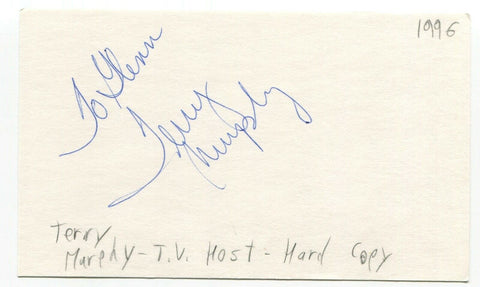 1996
To Glenn
Terry
Murphy
Terry
Murphy - T.V. Host - Hard Copy